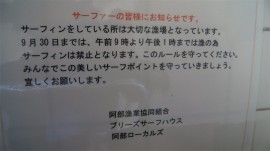 サーファーの皆様にお知らせです。
サーフィンをしている所は大切な漁場となっています。
9月30日までは、午前9時より午後1時までは漁の為
サーフィンは禁止となります。このルールを守ってください。
みんなでこの美しいサーフポイントを守っていきましょう。
宜しくお願いします。
阿部漁業協同組合
ブリーズサーフハウス
阿部ローカルズ